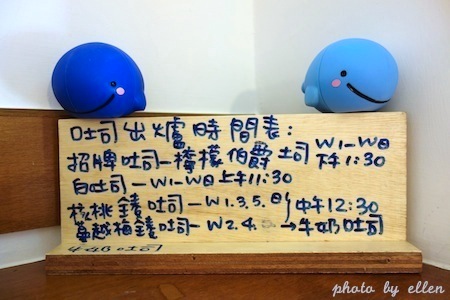 吐司出爐時間表:
招牌吐司-檸檬伯爵土司 W1-W日 下午1:30
白吐司-W1-W日 上午11:30
核桃鋳吐司-W1.3.5.日
蔓越梅鋳吐司-W2.4. 中午12:30
→牛奶吐司
牛奶吐司
photo by ellen